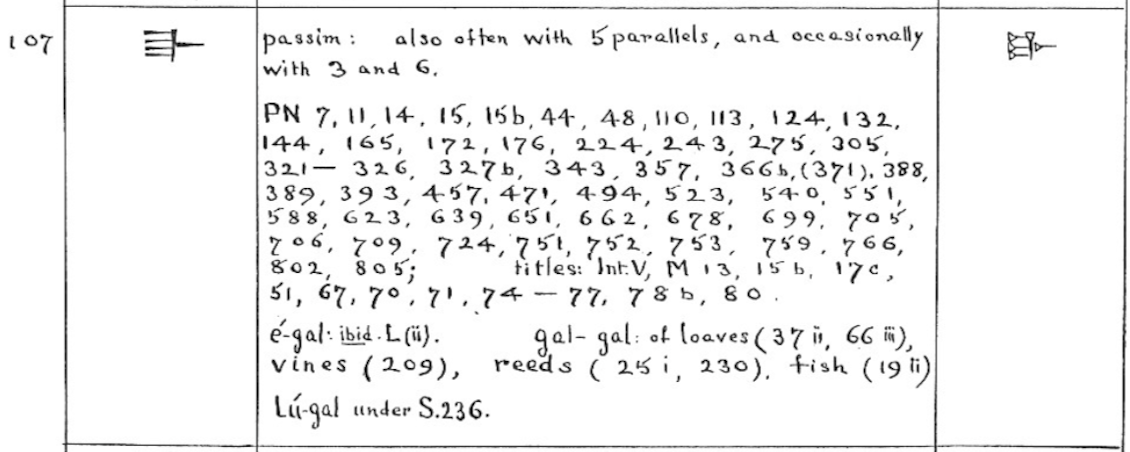 107
passim: also often with 5 parallels, and occasionally
with 3 and 6.
PN 7, 11, 14, 15, 15b, 44, 48, 110, 113, 124, 132,
144, 165, 172, 176, 224, 243, 275, 305,
321— 326, 327b, 343, 357, 366b, (371), 388,
389, 393, 457, 471, 494, 523, 540, 551,
588, 623, 639, 651, 662, 678, 699, 705,
706, 709, 724, 751, 752, 753, 759, 766,
802, 805; titles: Int.V, M 13, 15b, 17c,
51, 67, 70, 71, 74 — 77, 78b, 80.
é-gal: ibid. L(ii). gal-gal: of loaves (37 ii, 66 iii),
vines (209), reeds (25 i, 230), fish (19 ii)
Lú-gal under S.236.